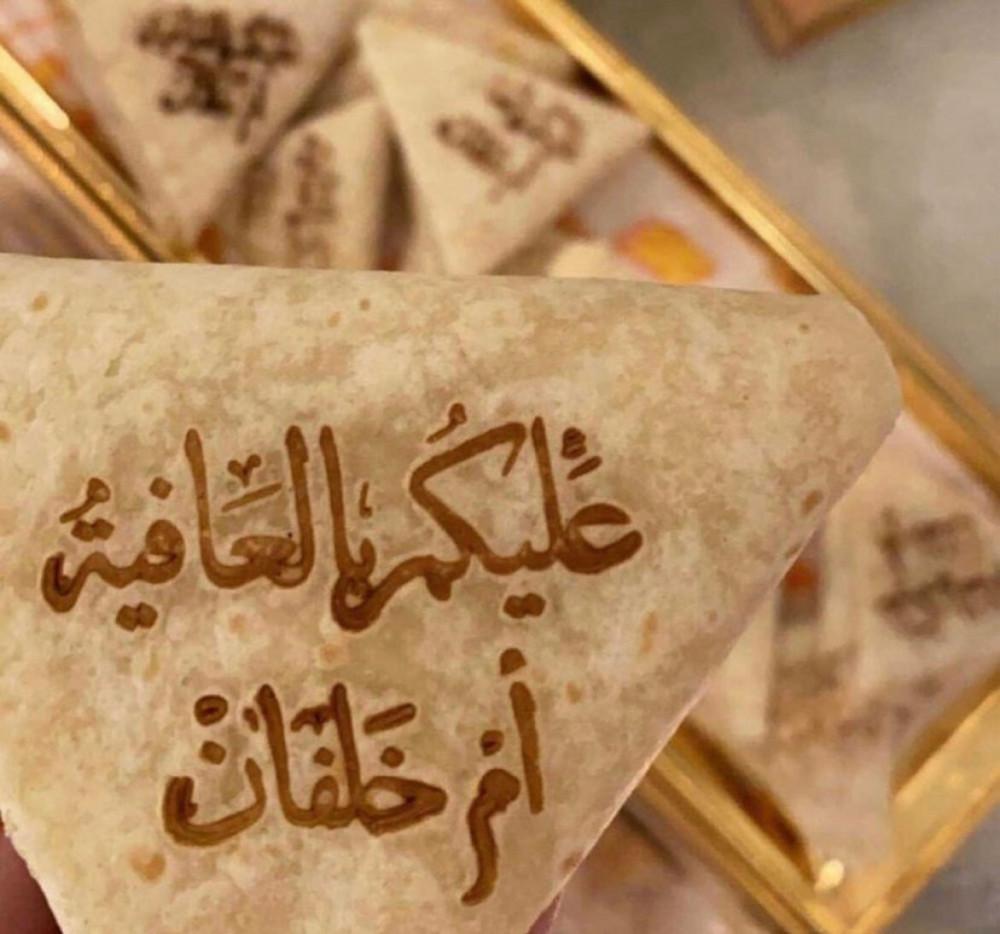 عَليكُم بالعَافيةُ
أم خَلفانْ